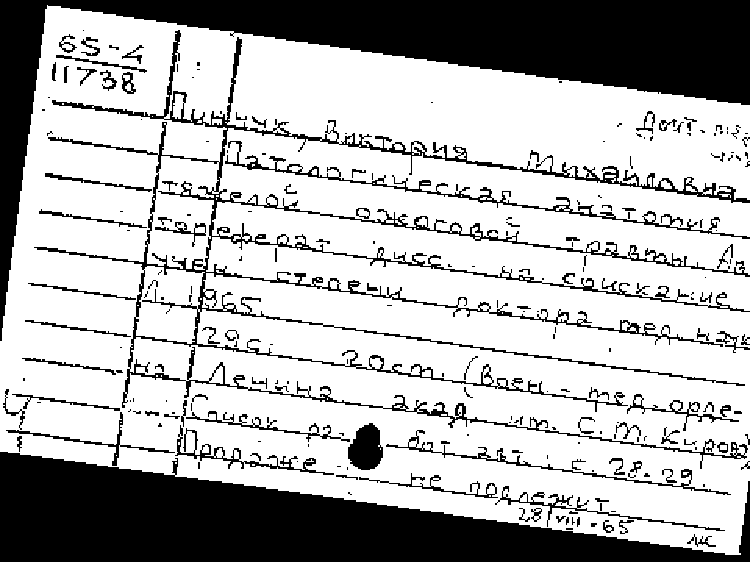 65-4
11738
Пинчук, Виктория Михайловна
Патологическая анатомия
тяжелой ожоговой травмы. Ав
тореферат дисс. на соискание
учен. степени доктора мед. наук
Л., 1965.
29с. 20см. (Воен-мед. орде-
на Ленина акад. им. С.М. Кирова)
Список работ авт.: с. 28-29.
Продаже не подлежит.
28/VIII-65